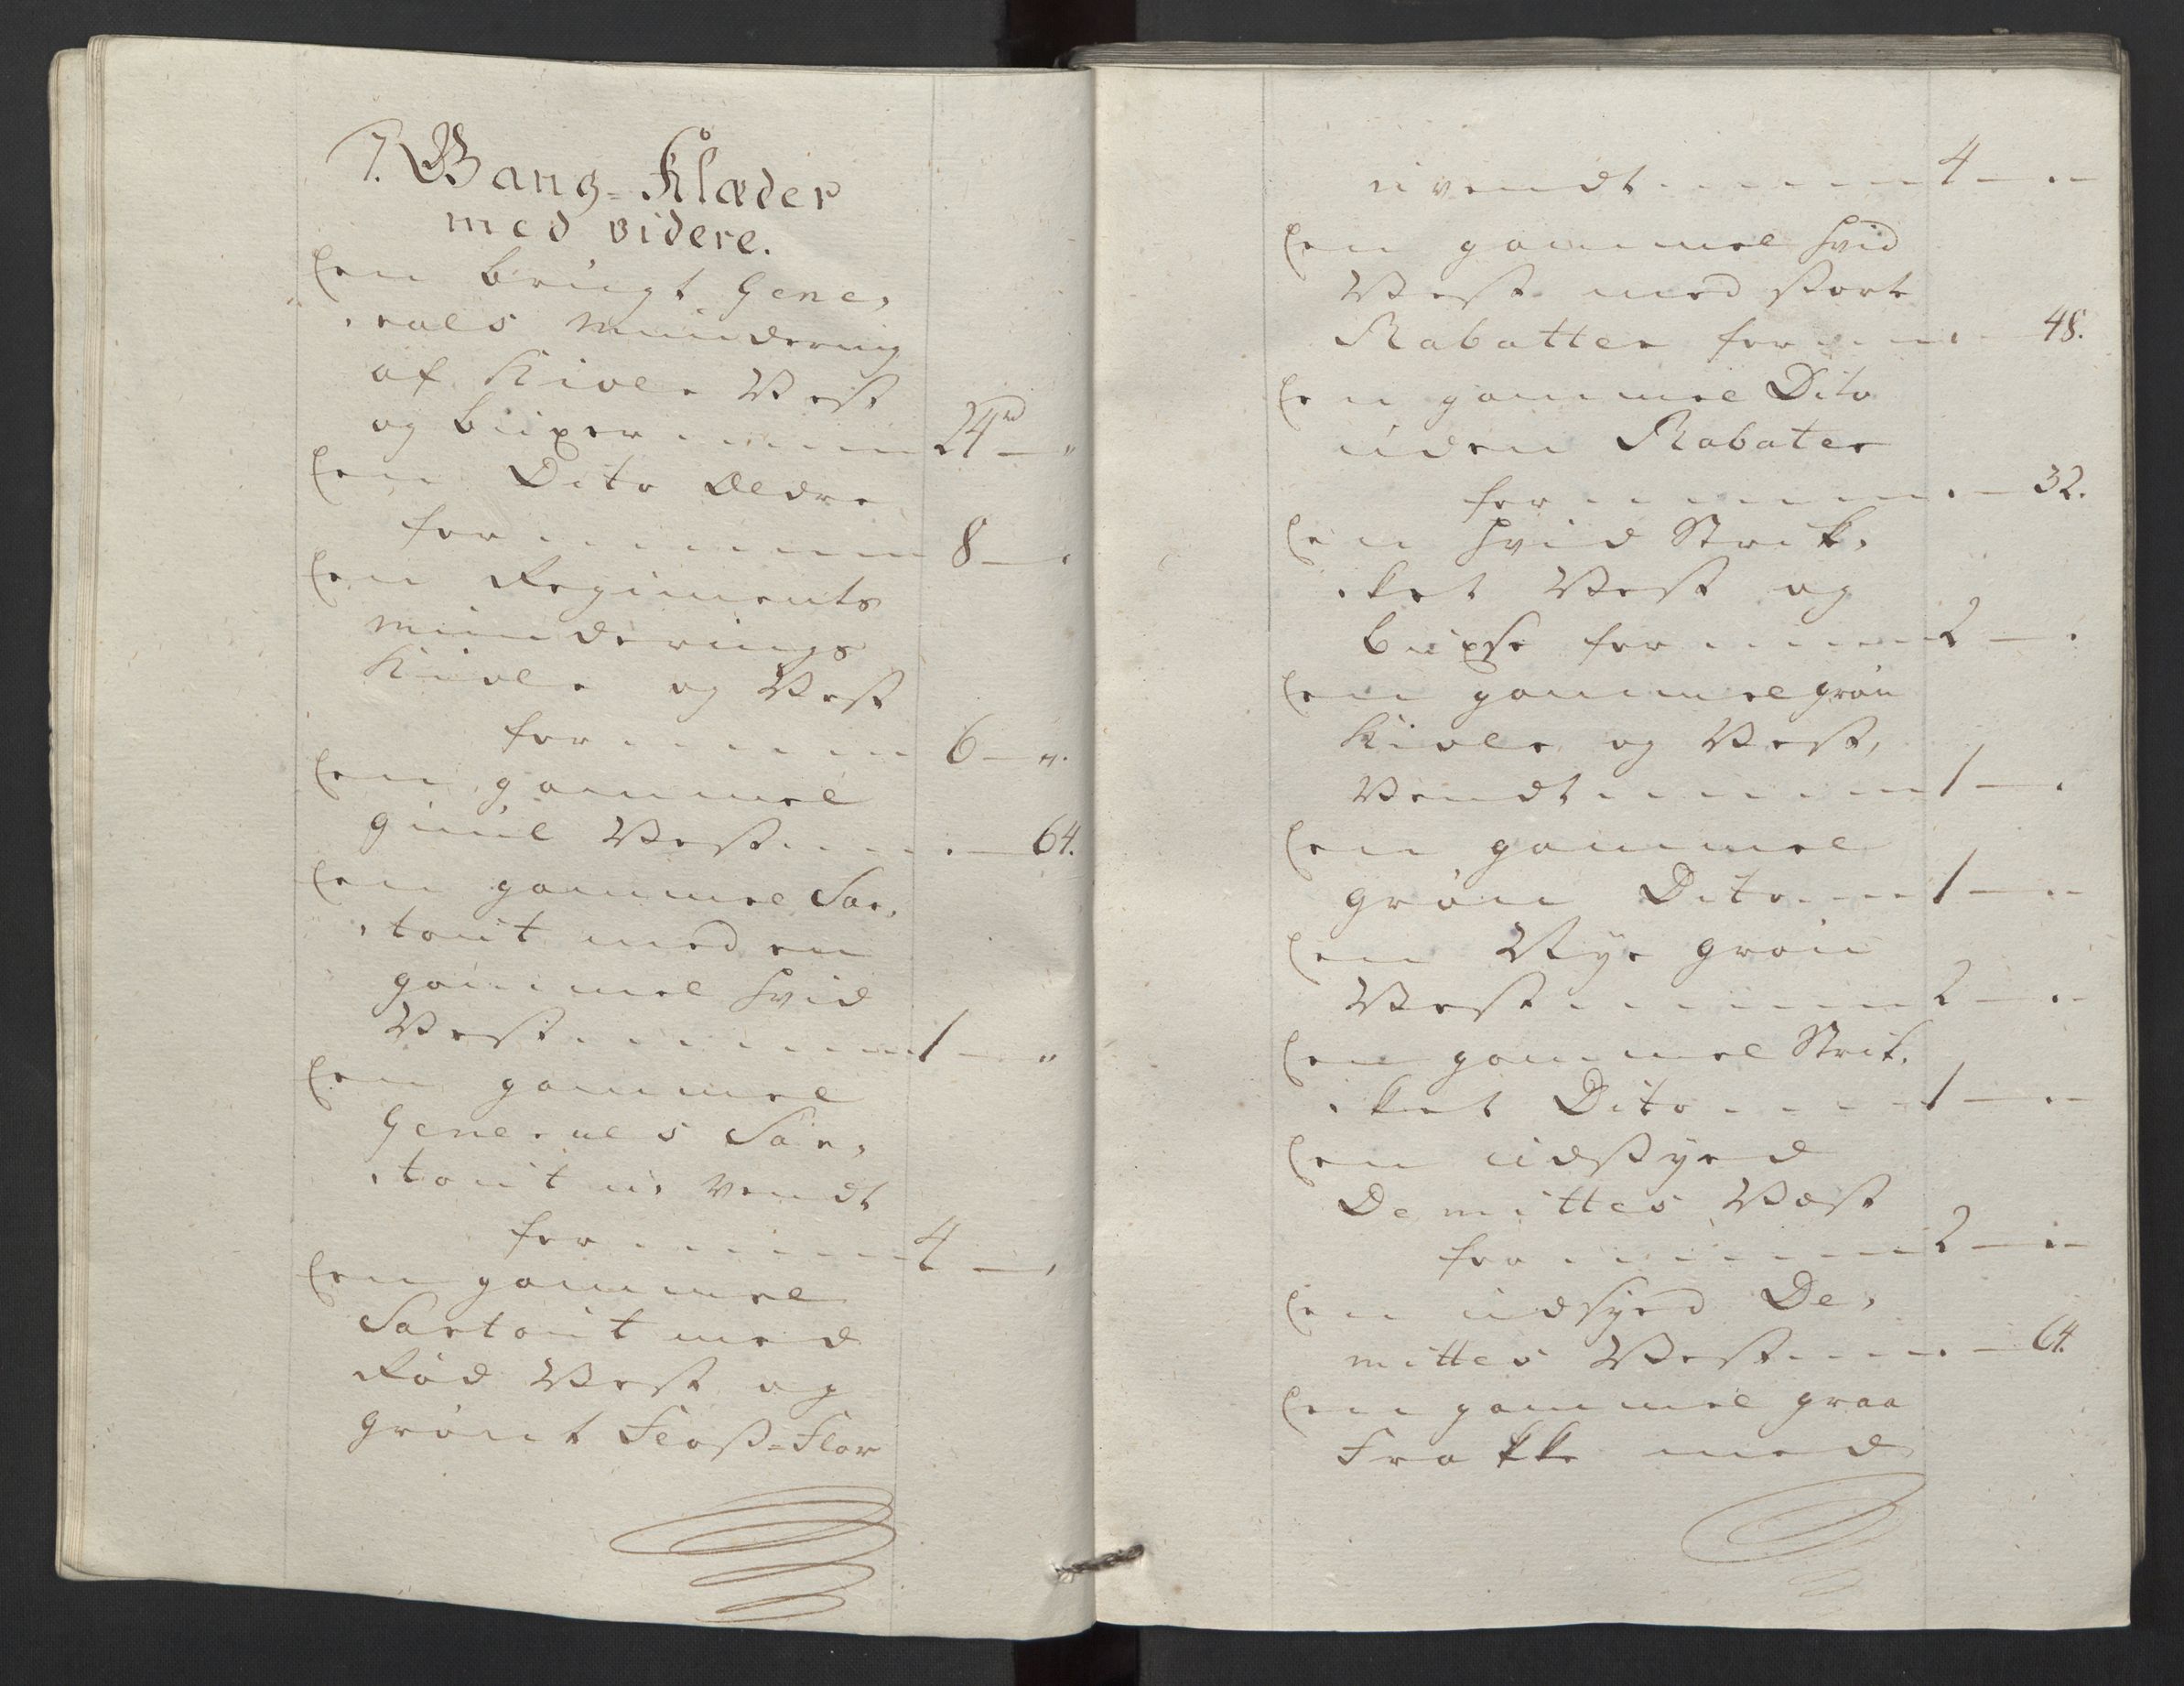 7. Gang-Klæder
med videre.
Een brugt Gene,
,rals Mundering
af Kiole Vest
og buxer . . . . . 24rd — "
Een Dito Ældre
for . . . . . . 8 — .
Een Regiments
Munderings
Kiole og Vest
for . . . . . 6 — ".
Een gammel
guul Vest . . . . . — 64.
Een gammel Sur,
,tout med en
gammel hvid
Vest . . . . . . 1 — "
Een gammel
Generals Sur,
,tout u, vendt
for . . . . . . 4 — ,
Een gammel
Surtout med
Rød Vest og
grønt Floß-Flor
uvendt . . . . . 4 — . —
Een gammel hvid
Vest med storte
Rabatter for . . . . — 48.
Een gammel Dito
uden Rabater
for . . . . . . . — 32.
Een hvid Strik,
,ket Vest og
buxse for . . . . 2 — .
Een gammel grøn
Kiole og Vest,
Vendt . . . . . . 1 — .
Een gammel
grøn Dito . . . 1 — . —
Een Nye grøn
Vest . . . . . . 2 — . —
Een gammel Strik,
,ket Dito . . . . 1 — . —
Een udstyed
Demittes Vest
for . . . . . . 2 — . —
Een udsyed De,
mittes Vest . . . . — 64.
Een gammel graa
Frakke med